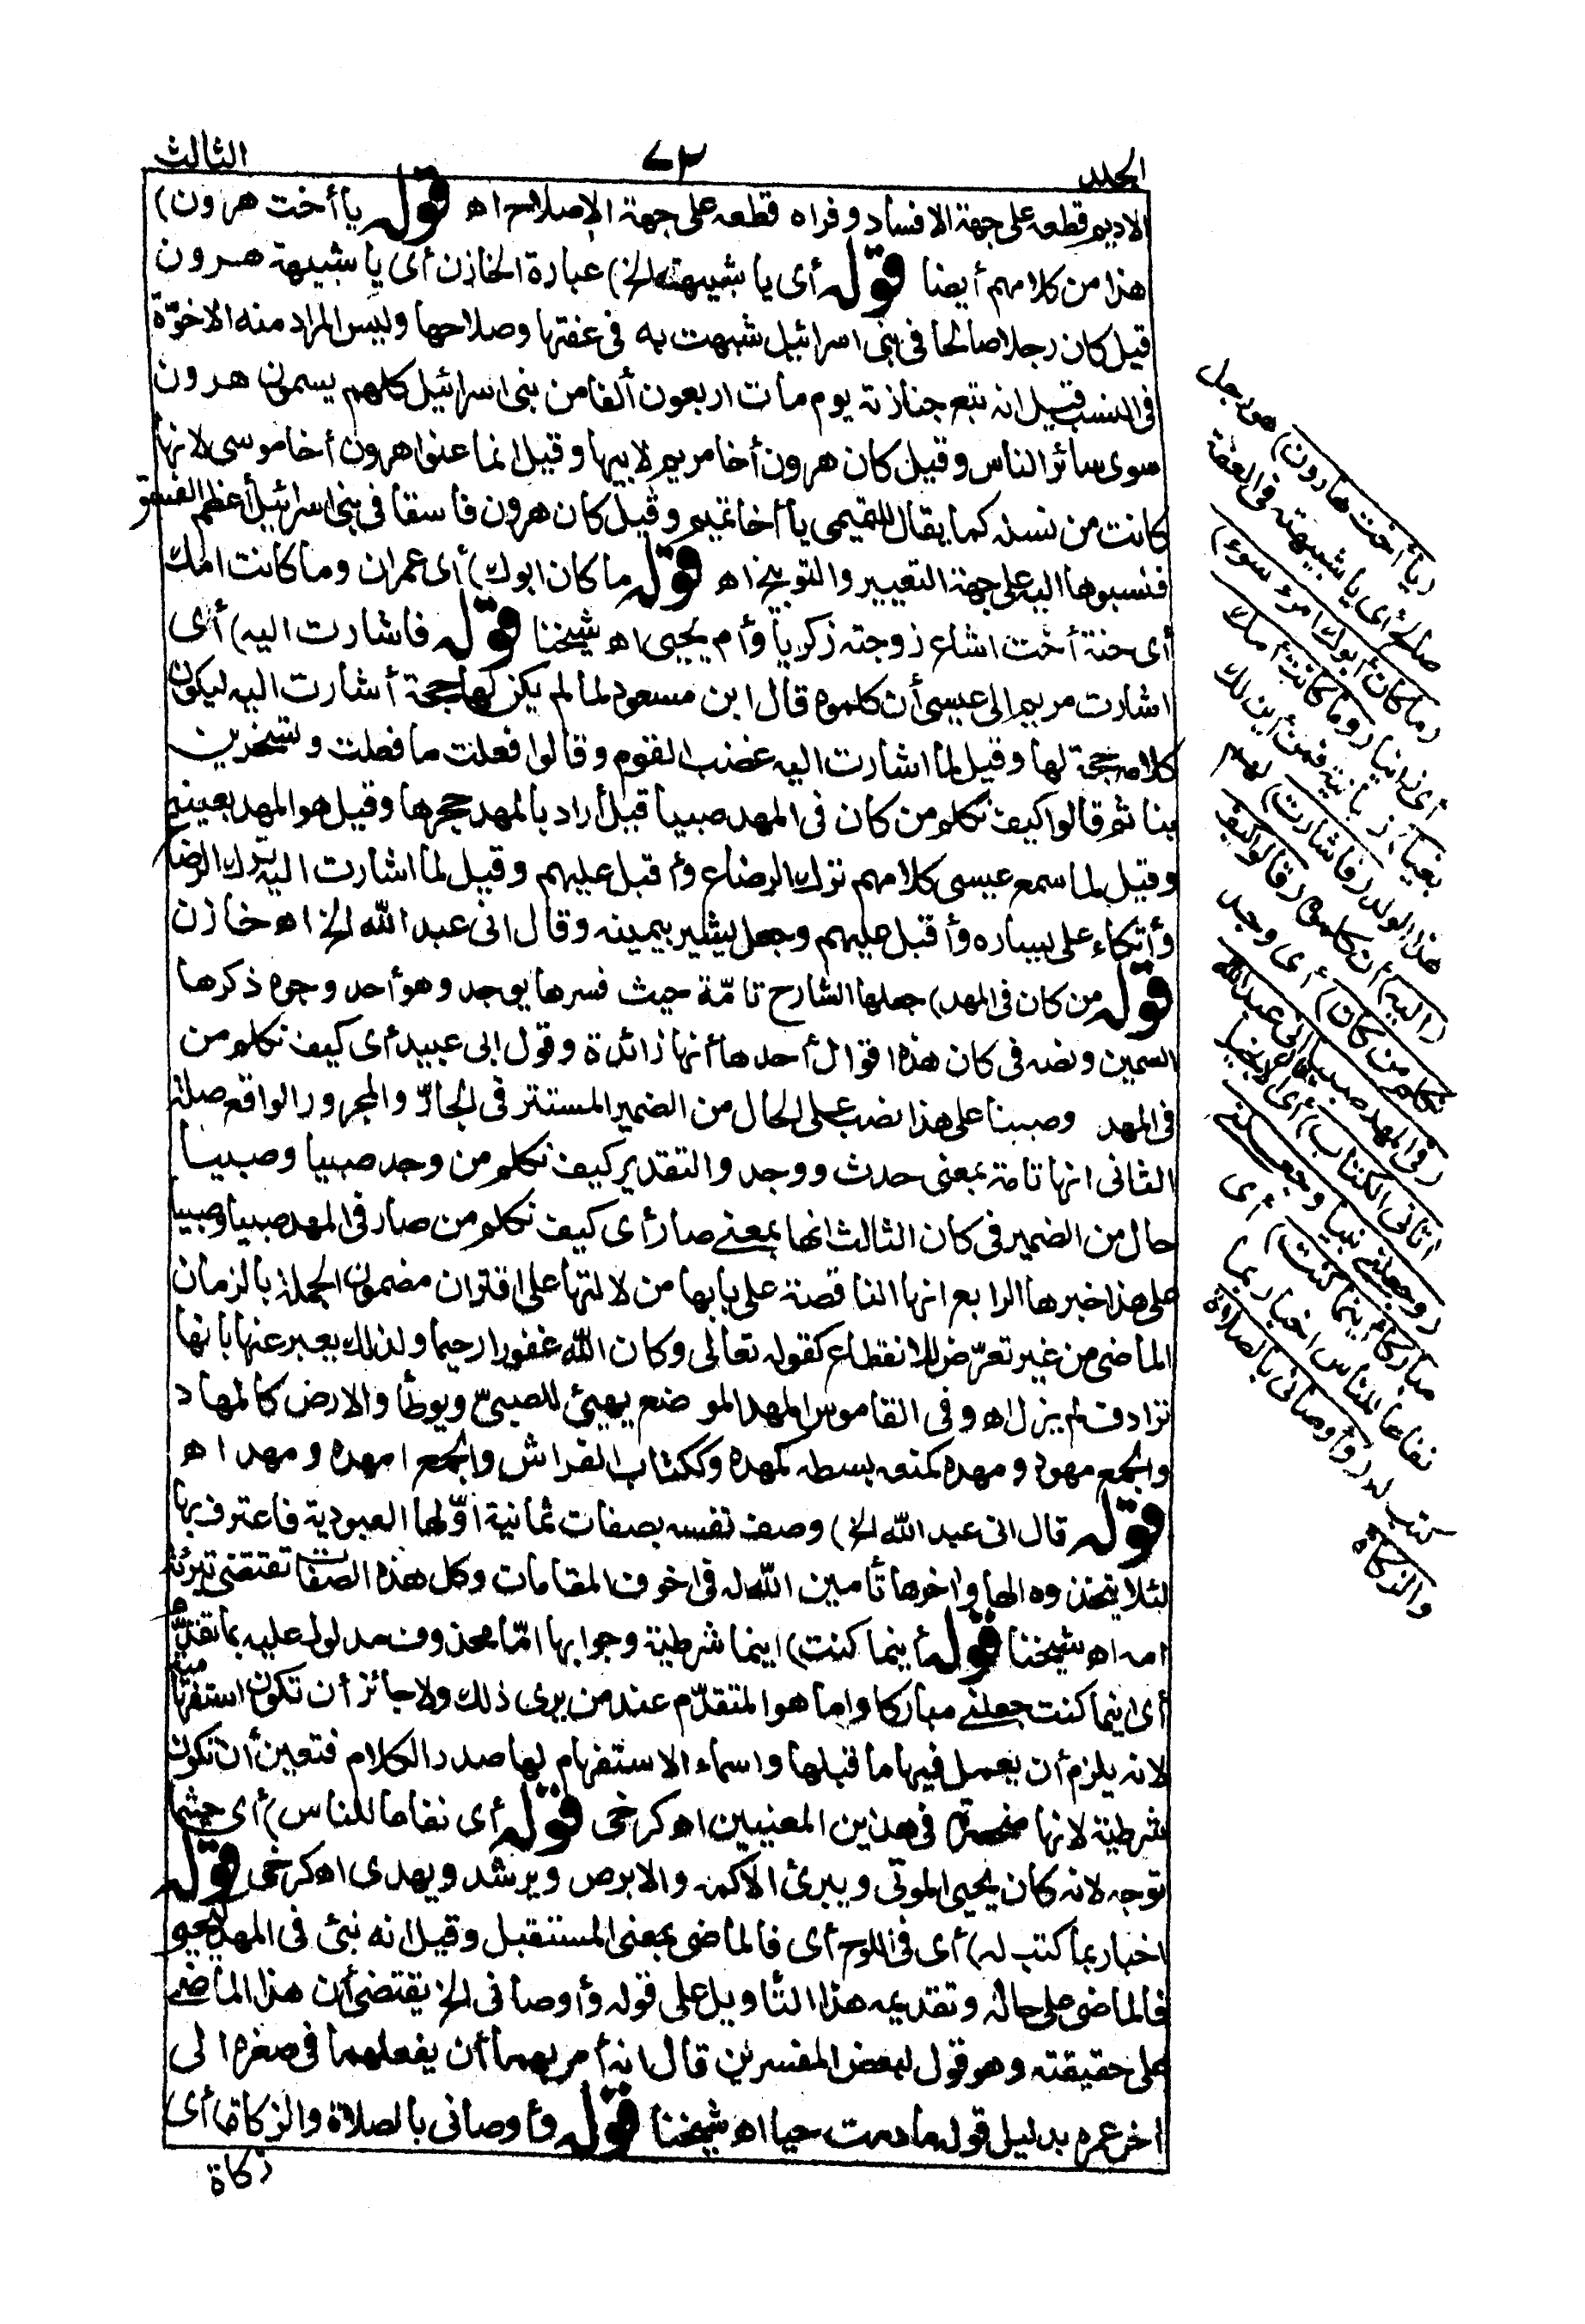 الجلد ٧٢ الثالث
الاديم قطعه على جهة الافساد وفراه قطعه على جهة الاصلاح اه قوله يا أخت هرون)
هذا من كلامهم أيضا قوله أى يا شبيهته الخ) عبارة الخازن أى يا شبيهة هرون
قيل كان رجلا صالحا فى بنى اسرائيل شبهت به فى عفتها وصلاحها وليس المراد منه الاخوّة
فى النسب قيل انه تبع جنازته يوم مات اربعون ألفا من بنى اسرائيل كلهم يسمى هرون
سوى سائر الناس وقيل كان هرون أخا مريم لابيها وقيل انما عنوا هرون أخا موسى لانها
كانت من نسله كما يقال للتميمى يا أخا تميم وقيل كان هرون فاسقا فى بنى اسرائيل أعظم الفسق
فنسبوها اليه على جهة التعيير والتوبيخ اه قوله ما كان ابوك) أى عمران وما كانت امك
أى حنة أخت اشاع زوجته زكريا وأم يحيى اه شيخنا قوله فاشارت اليه) أى
اشارت مريم الى عيسى أن كلموه قال ابن مسعود لما لم يكن لها حجة أشارت اليه ليكون
كلامه حجة لها وقيل لما اشارت اليه غضب القوم وقالوا فعلت ما فعلت وتسخرين
بنا ثم قالوا كيف نكلم من كان فى المهد صبيا قيل أراد بالمهد حجرها وقيل هو المهد بعينه
وقيل لما سمع عيسى كلامهم ترك الرضاع وأقبل عليهم وقيل لما اشارت اليه ترك الرضاع
وأتكاء على يساره وأقبل عليهم وجعل يشير بيمينه وقال انى عبد الله الخ اه خازن
قوله من كان فى المهد) جعلها الشارح تامّة حيث فسرها بوجد وهو أحد وجوه ذكرها
السمين ونصه فى كان هذه اقوال أحدها أنها زائدة وقول ابى عبيد أى كيف نكلم من
فى المهد وصبينا على هذا نصب على الحال من الضمير المستتر فى الجارّ والمجرور الواقع صلة
الثانى انها تامة بمعنى حدث ووجد والتقدير كيف نكلم من وجد صبيا وصبيا
حال من الضمير فى كان الثالث انها بمعنى صار أى كيف نكلم من صار فى المهد صبيا وصبيا
على هذا خبرها الرابع انها الناقصة على بابها من لالتها على اقتران مضمون الجملة بالزمان
الماضى من غير تعرّض للانقطاع كقوله تعالى وكان الله غفورا رحيما ولذلك يعبر عنها بانها
ترادف لم يزل اه وفى القاموس المهد الموضع يهيئ للصبىّ ويوطأ والارض كالمهاد
والجمع مهود ومهده كمنعه بسطه كمهده وككتاب الفراش والجمع امهده ومهد اه
قوله قال انى عبد الله الخ) وصف نفسه بصفات ثمانية اوّلها العبودية فاعترف بها
لئلا يتخذوه الها واخرها تأمين الله له فى اخوف المقامات وكل هذه الصفات تقتضى تبرئة
امه اه شيخنا قوله أينما كنت) اينما شرطية وجوابها امّا محذوف مدلول عليه بما تقدّم
أى اينما كنت جعلنى مباركا واما هو المتقدّم عند من يرى ذلك ولا جائز أن تكون استفهامية
لانه يلزم أن يعمل فيها ما قبلها واسماء الاستفهام لها صدر الكلام فتعين أن تكون
شرطية لانها منحصرة فى هذين المعنيين اه كرخى قوله أى نفاعا للناس) أى حيثما
توجه لانه كان يحيى الموتى ويبرئ الاكمه والابرص ويرشد ويهدى اه كرخى قوله
اخبار بما كتب له) أى فى اللوح أى فالماضى بمعنى المستقبل وقيل انه نبئ فى المهد
فالماضى على حاله وتقديمه هذا التأويل على قوله وأوصانى الخ يقتضى أن هذا الماضى
على حقيقته وهو قول لبعض المفسرين قال انه أمر بهما أن يفعلهما فى صغره الى
اخر عمره بدليل قوله ما دمت حيا اه شيخنا قوله وأوصانى بالصلاة والزكاة) أى
زكاة
(يا أخت هارون) هو رجل
صالح أى يا شبيهته فى العفة
(ما كان أبوك امرء سوء)
أى زانيا (وما كانت أمك
بغيا) زانية فمن أين لك
هذا الولد (فاشارت) لهم
(اليه) أن كلموه (قالوا كيف
نكلم من كان) أى وجد
(فى المهد صبيا) قال انى عبد الله
آتانى الكتاب) أى الانجيل
(وجعلنى نبيا وجعلنى
مباركا أينما كنت) أى
نفاعا للناس اخبار بما
كتب له (وأوصانى بالصلاة
والزكاة)